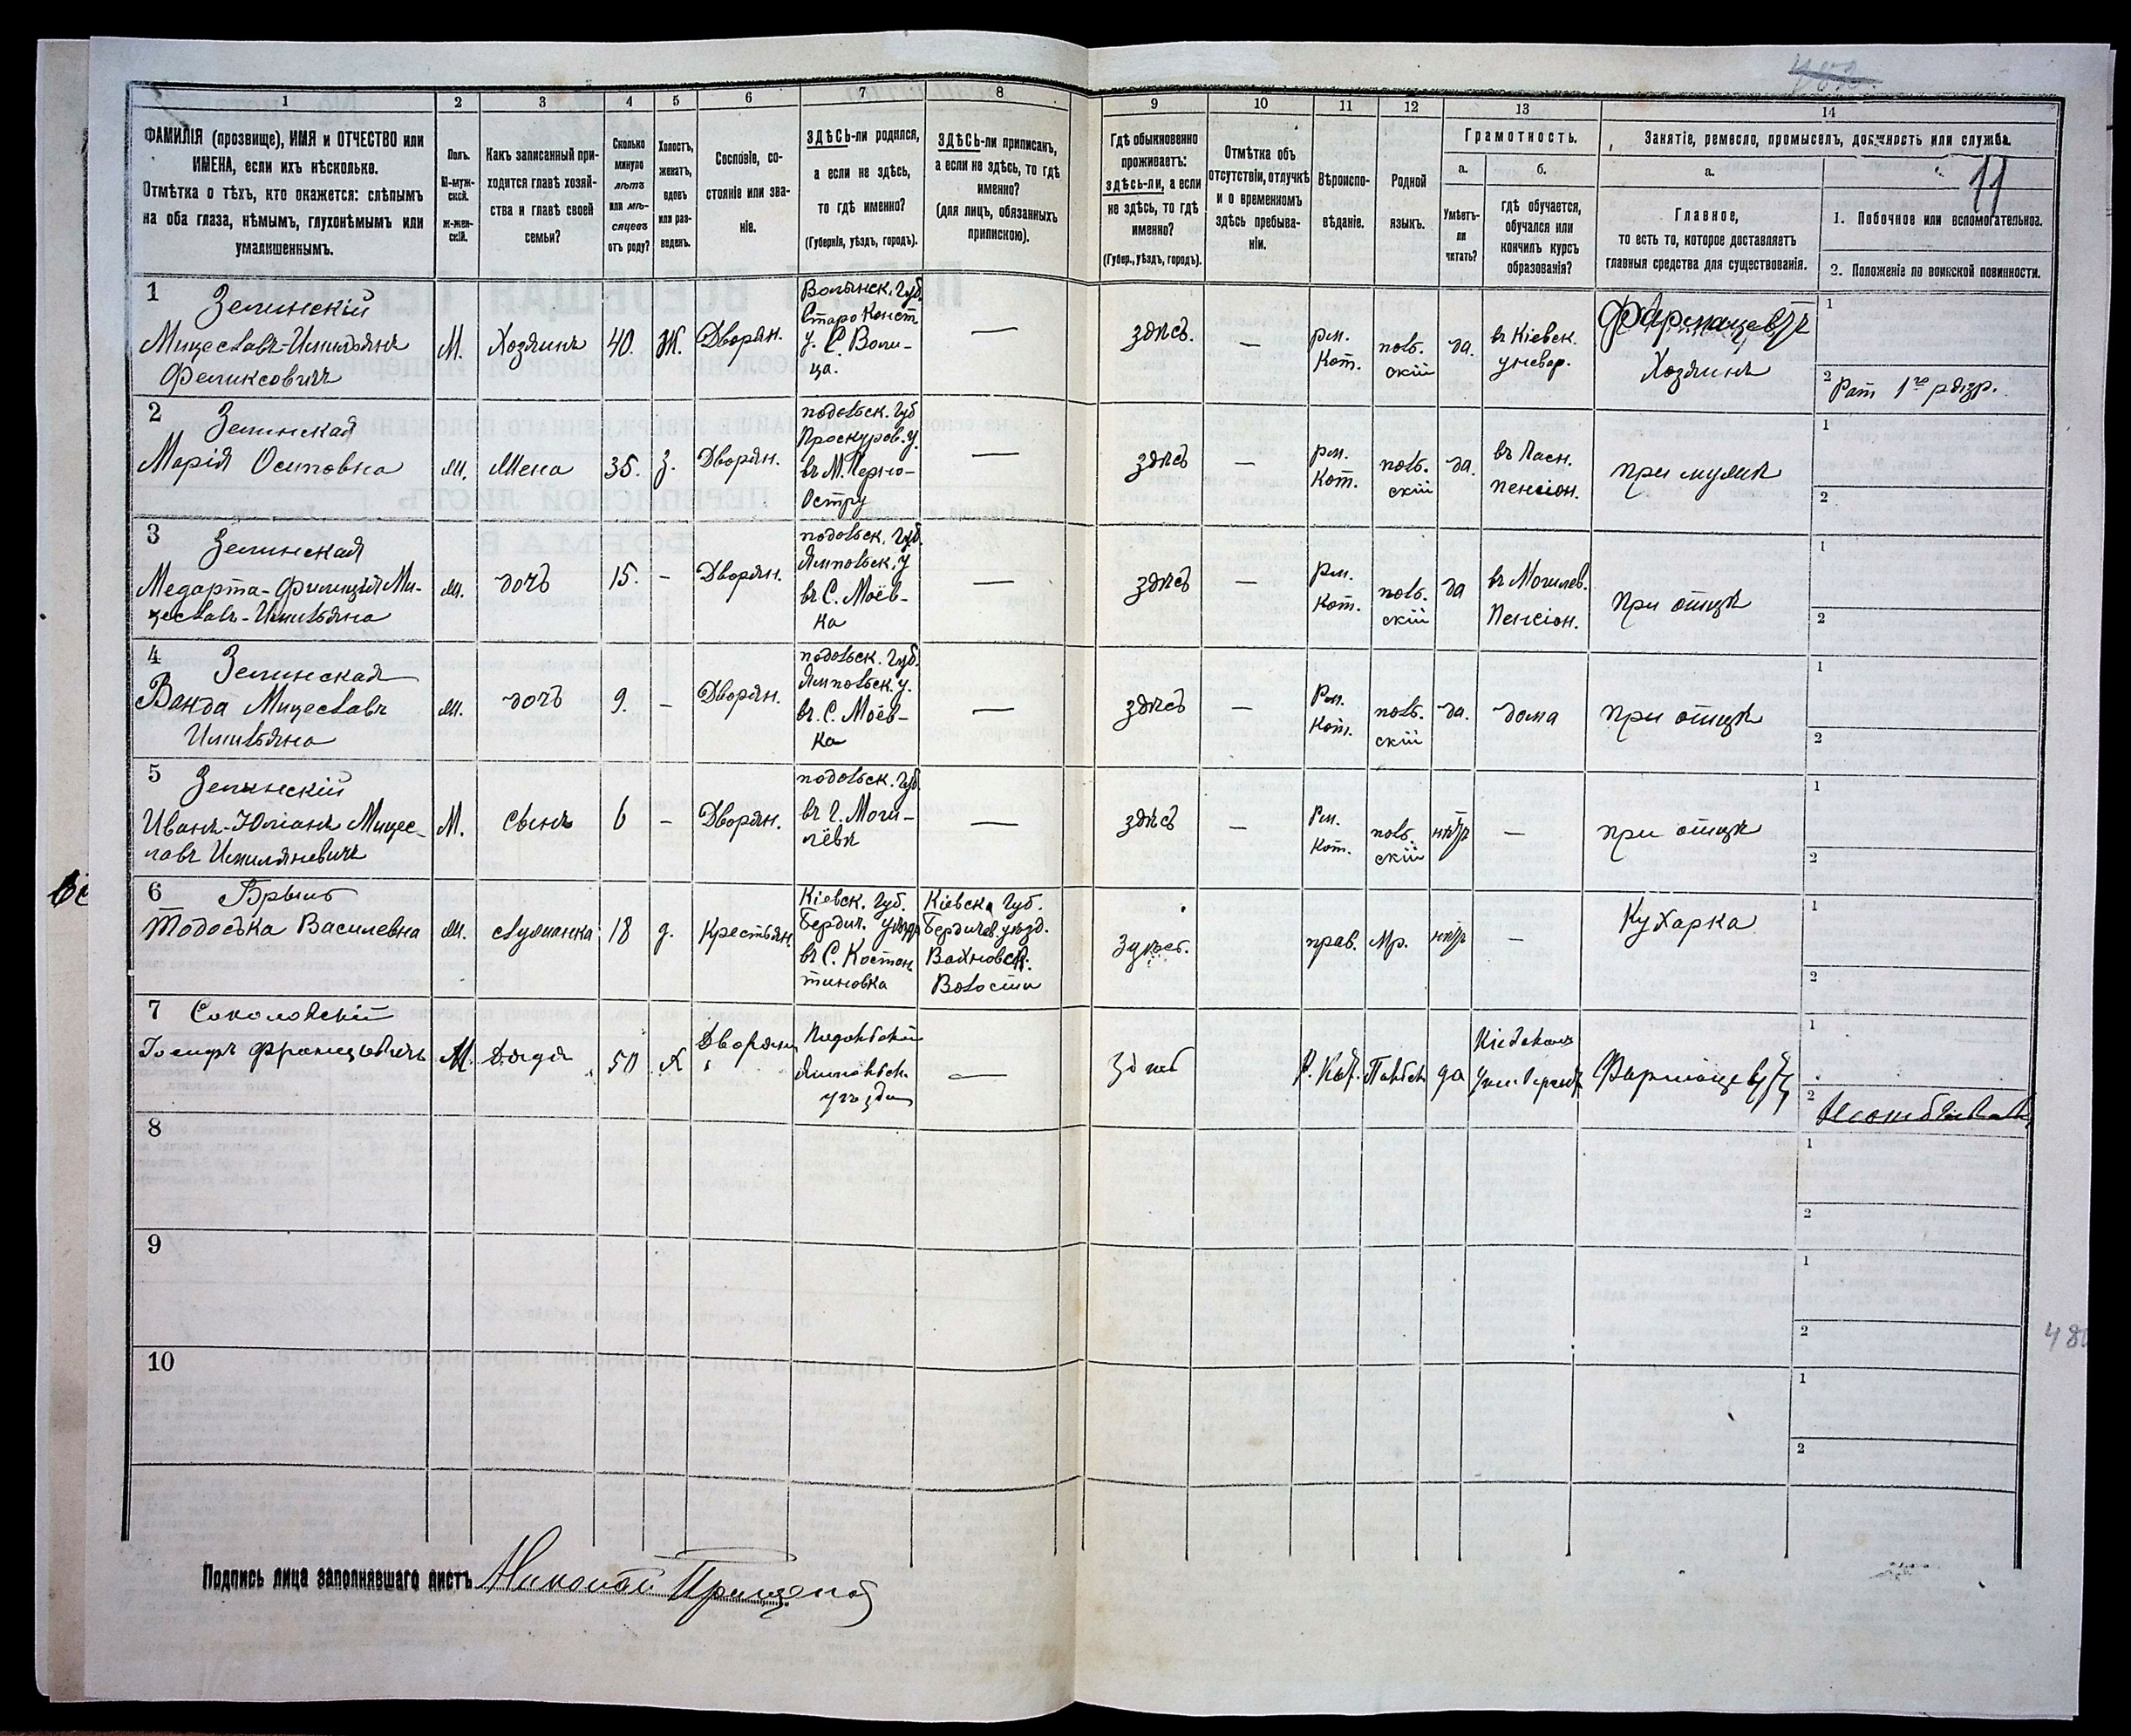 483.
1 2 3 4 5 6 7 8 9 10 11 12 13 14
ФАМИЛІЯ (прозвище), ИМЯ и ОТЧЕСТВО или
ИМЕНА, если ихъ нѣсколько.
Отмѣтка о тѣхъ, кто окажется: слѣпымъ
на оба глаза, нѣмымъ, глухонѣмымъ или
умалишеннымъ.
Полъ.
М-муж-
ской.
ж-жен-
скій.
Какъ записанный при-
ходится главѣ хозяй-
ства и главѣ своей
семьи?
Сколько
минуло
лѣтъ
или мѣ-
сяцевъ
отъ роду?
Холостъ,
женатъ,
вдовъ
или раз-
веденъ.
Сословіе, со-
стояніе или зва-
ніе.
ЗДѢСЬ-ли родился,
а если не здѣсь,
то гдѣ именно?
(Губернія, уѣздъ, городъ).
ЗДѢСЬ-ли приписанъ,
а если не здѣсь, то гдѣ
именно?
(для лицъ, обязанныхъ
припискою).
Гдѣ обыкновенно
проживаетъ:
здѣсь-ли, а если
не здѣсь, то гдѣ
именно?
(Губер., уѣздъ, городъ).
Отмѣтка объ
отсутствіи, отлучкѣ
и о временномъ
здѣсь пребыва-
ніи.
Вѣроиспо-
вѣданіе.
Родной
языкъ.
Грамотность.
а.
Умѣетъ-
ли
читать?
б.
гдѣ обучается,
обучался или
кончилъ курсъ
образованія?
Занятіе, ремесло, промыселъ, должность или служба.
а.
Главное,
то есть то, которое доставляетъ
главныя средства для существованія.
11
1. Побочное или вспомогательное.
2. Положеніе по воинской повинности.
1 Зелинскій
Мицеславъ-Имильянъ
Феликсовичъ
М.
Хозяинъ
40.
Ж.
Дворян.
Волынск. Губ.
Старо Конст
у. С. Воли-
ца.
—
здѣсь.
—
рим.
Кат.
поль.
скій
да.
въ Кіевск.
универ.
Фармацевтъ
Хозяинъ
1
2 Рат 1го разр.
2 Зелинская
Марія Осиповна
ж.
Жена
35.
З.
Дворян.
подольск. Губ
Проскуров. у.
въ М. Черно-
Остру
—
здѣсь
—
рим.
Кат.
поль.
скій
да.
пенсіон.
при мужѣ
1
2
3 Зелинская
Медарта-Фелиція Ми-
цеславъ-Имильяна
ж.
дочь
15.
-
Дворян.
подольск. Губ.
Ямпольск. у
въ С. Моёв-
ка
—
здѣсь
—
рим.
Кат.
поль.
скій
да
въ Могилев.
Пенсіон.
при отцѣ
1
2
4 Зелинская
Ванда Мицеславъ
Имильяна
ж.
дочь
9.
-
Дворян.
подольск. Губ.
Ямпольск. у.
въ. С. Моёв-
ка
—
здѣсь
—
Рим.
Кат.
поль.
скій
да.
дома
при отцѣ
1
2
5 Зелинскій
Иванъ-Юліанъ Мицес-
лавъ Имиляневичъ
М.
сынъ
6
-
Дворян.
подольск. Губ.
въ г. Моги-
лёвѣ
—
здѣсь
—
Рим.
Кат.
поль.
скій
нѣтъ
—
при отцѣ
1
2
6 Брыль
Тодоська Василевна
ж.
служанка
18
д.
Крестьян.
Кіевск. Губ.
Бердич. уѣзд
въ С. Костан
тиновка
Кіевска Губ.
Бердичев. уѣзд.
Вахновск.
Волости
Здѣсь.
прав.
Мр.
нѣтъ
—
Кухарка
1
2
7 Соколовскій
Іосифъ Францовичъ
М.
Дядя
50
Х
Дворянин
Подольской
Ямпольск.
уѣзда
—
Здѣсь
Р. Кат.
Польск
да
Кіевском
Университ
Фармацевтъ
1
2
8
1
2
9
1
2
10
1
2
Подпись лица заполнявшаго листъ Николай